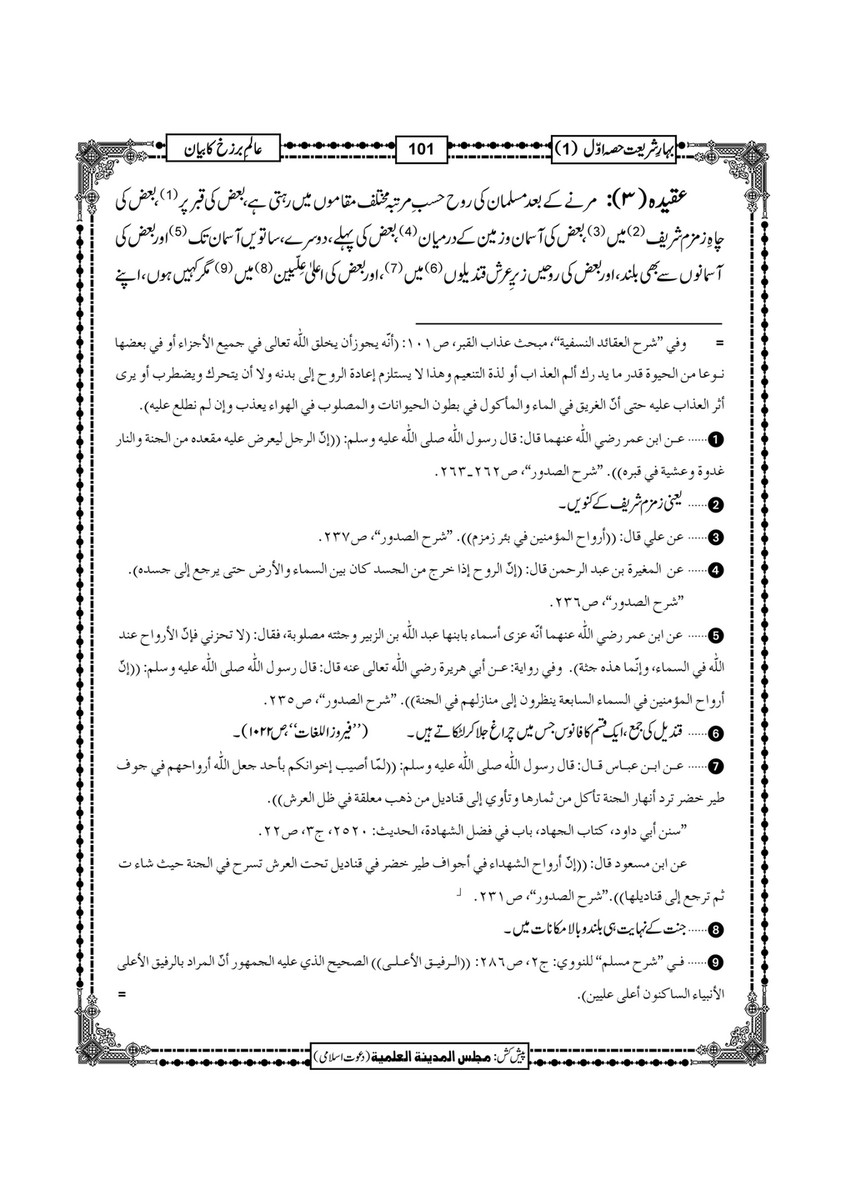 بہارِشریعت حصہ اوّل (1)
101
عالمِ برزخ کا بیان
عقیدہ (۳): مرنے کے بعد مسلمان کی روح حسبِ مرتبہ مختلف مقاموں میں رہتی ہے، بعض کی قبر پر (1)، بعض کی
چاہِ زمزم شریف (2) میں (3)، بعض کی آسمان و زمین کے درمیان (4)، بعض کی پہلے، دوسرے، ساتویں آسمان تک (5) اور بعض کی
آسمانوں سے بھی بلند، اور بعض کی روحیں زیرِ عرش قندیلوں (6) میں (7)، اور بعض کی اعلیٰ عِلّیین (8) میں (9) مگر کہیں ہوں، اپنے
= وفي ”شرح العقائد النسفية“، مبحث عذاب القبر، ص١٠١: (أنّه يجوزأن يخلق اللّٰه تعالى في جميع الأجزاء أو في بعضها
نوعا من الحيوة قدر ما يدرك ألم العذاب أو لذة التنعيم وهذا لا يستلزم إعادة الروح إلى بدنه ولا أن يتحرك ويضطرب أو يرى
أثر العذاب عليه حتى أنّ الغريق في الماء والمأكول في بطون الحيوانات والمصلوب في الهواء يعذب وإن لم نطلع عليه).
1...... عن ابن عمر رضي اللّٰه عنهما قال: قال رسول اللّٰه صلى اللّٰه عليه وسلم: ((إنّ الرجل ليعرض عليه مقعده من الجنة والنار
غدوة وعشية في قبره)). ”شرح الصدور“، ص٢٦٢-٢٦٣.
2...... یعنی زمزم شریف کے کنویں۔
3...... عن علي قال: ((أرواح المؤمنين في بئر زمزم)). ”شرح الصدور“، ص٢٣٧.
4...... عن المغيرة بن عبد الرحمن قال: (إنّ الروح إذا خرج من الجسد كان بين السماء والأرض حتى يرجع إلى جسده).
”شرح الصدور“، ص٢٣٦.
5...... عن ابن عمر رضي اللّٰه عنهما أنّه عزى أسماء بابنها عبد اللّٰه بن الزبير وجثته مصلوبة، فقال: (لا تحزني فإنّ الأرواح عند
اللّٰه في السماء، وإنّما هذه جثة). وفي رواية: عن أبي هريرة رضي اللّٰه تعالى عنه قال: قال رسول اللّٰه صلى اللّٰه عليه وسلم: ((إنّ
أرواح المؤمنين في السماء السابعة ينظرون إلى منازلهم في الجنة)). ”شرح الصدور“، ص٢٣٥.
6...... قندیل کی جمع، ایک قسم کا فانوس جس میں چراغ جلا کر لٹکاتے ہیں۔ (’’فیروز اللغات‘‘، ص۱۰۲۲)۔
7...... عن ابن عباس قال: قال رسول اللّٰه صلى اللّٰه عليه وسلم: ((لمّا أصيب إخوانكم بأحد جعل اللّٰه أرواحهم في جوف
طير خضر ترد أنهار الجنة تأكل من ثمارها وتأوي إلى قناديل من ذهب معلقة في ظل العرش)).
”سنن أبي داود، كتاب الجهاد، باب في فضل الشهادة، الحديث: ٢٥٢٠، ج٣، ص٢٢.
عن ابن مسعود قال: ((إنّ أرواح الشهداء في أجواف طير خضر في قناديل تحت العرش تسرح في الجنة حيث شاء ت
ثم ترجع إلى قناديلها)).”شرح الصدور“، ص٢٣١.
8...... جنت کے نہایت ہی بلند و بالا مکانات میں۔
9...... في ”شرح مسلم“ للنووي: ج٢، ص٢٨٦: ((الرفيق الأعلى)) الصحيح الذي عليه الجمهور أنّ المراد بالرفيق الأعلى
الأنبياء الساكنون أعلى عليين). =
پیش کش: مجلس المدینة العلمیة (دعوت اسلامی)